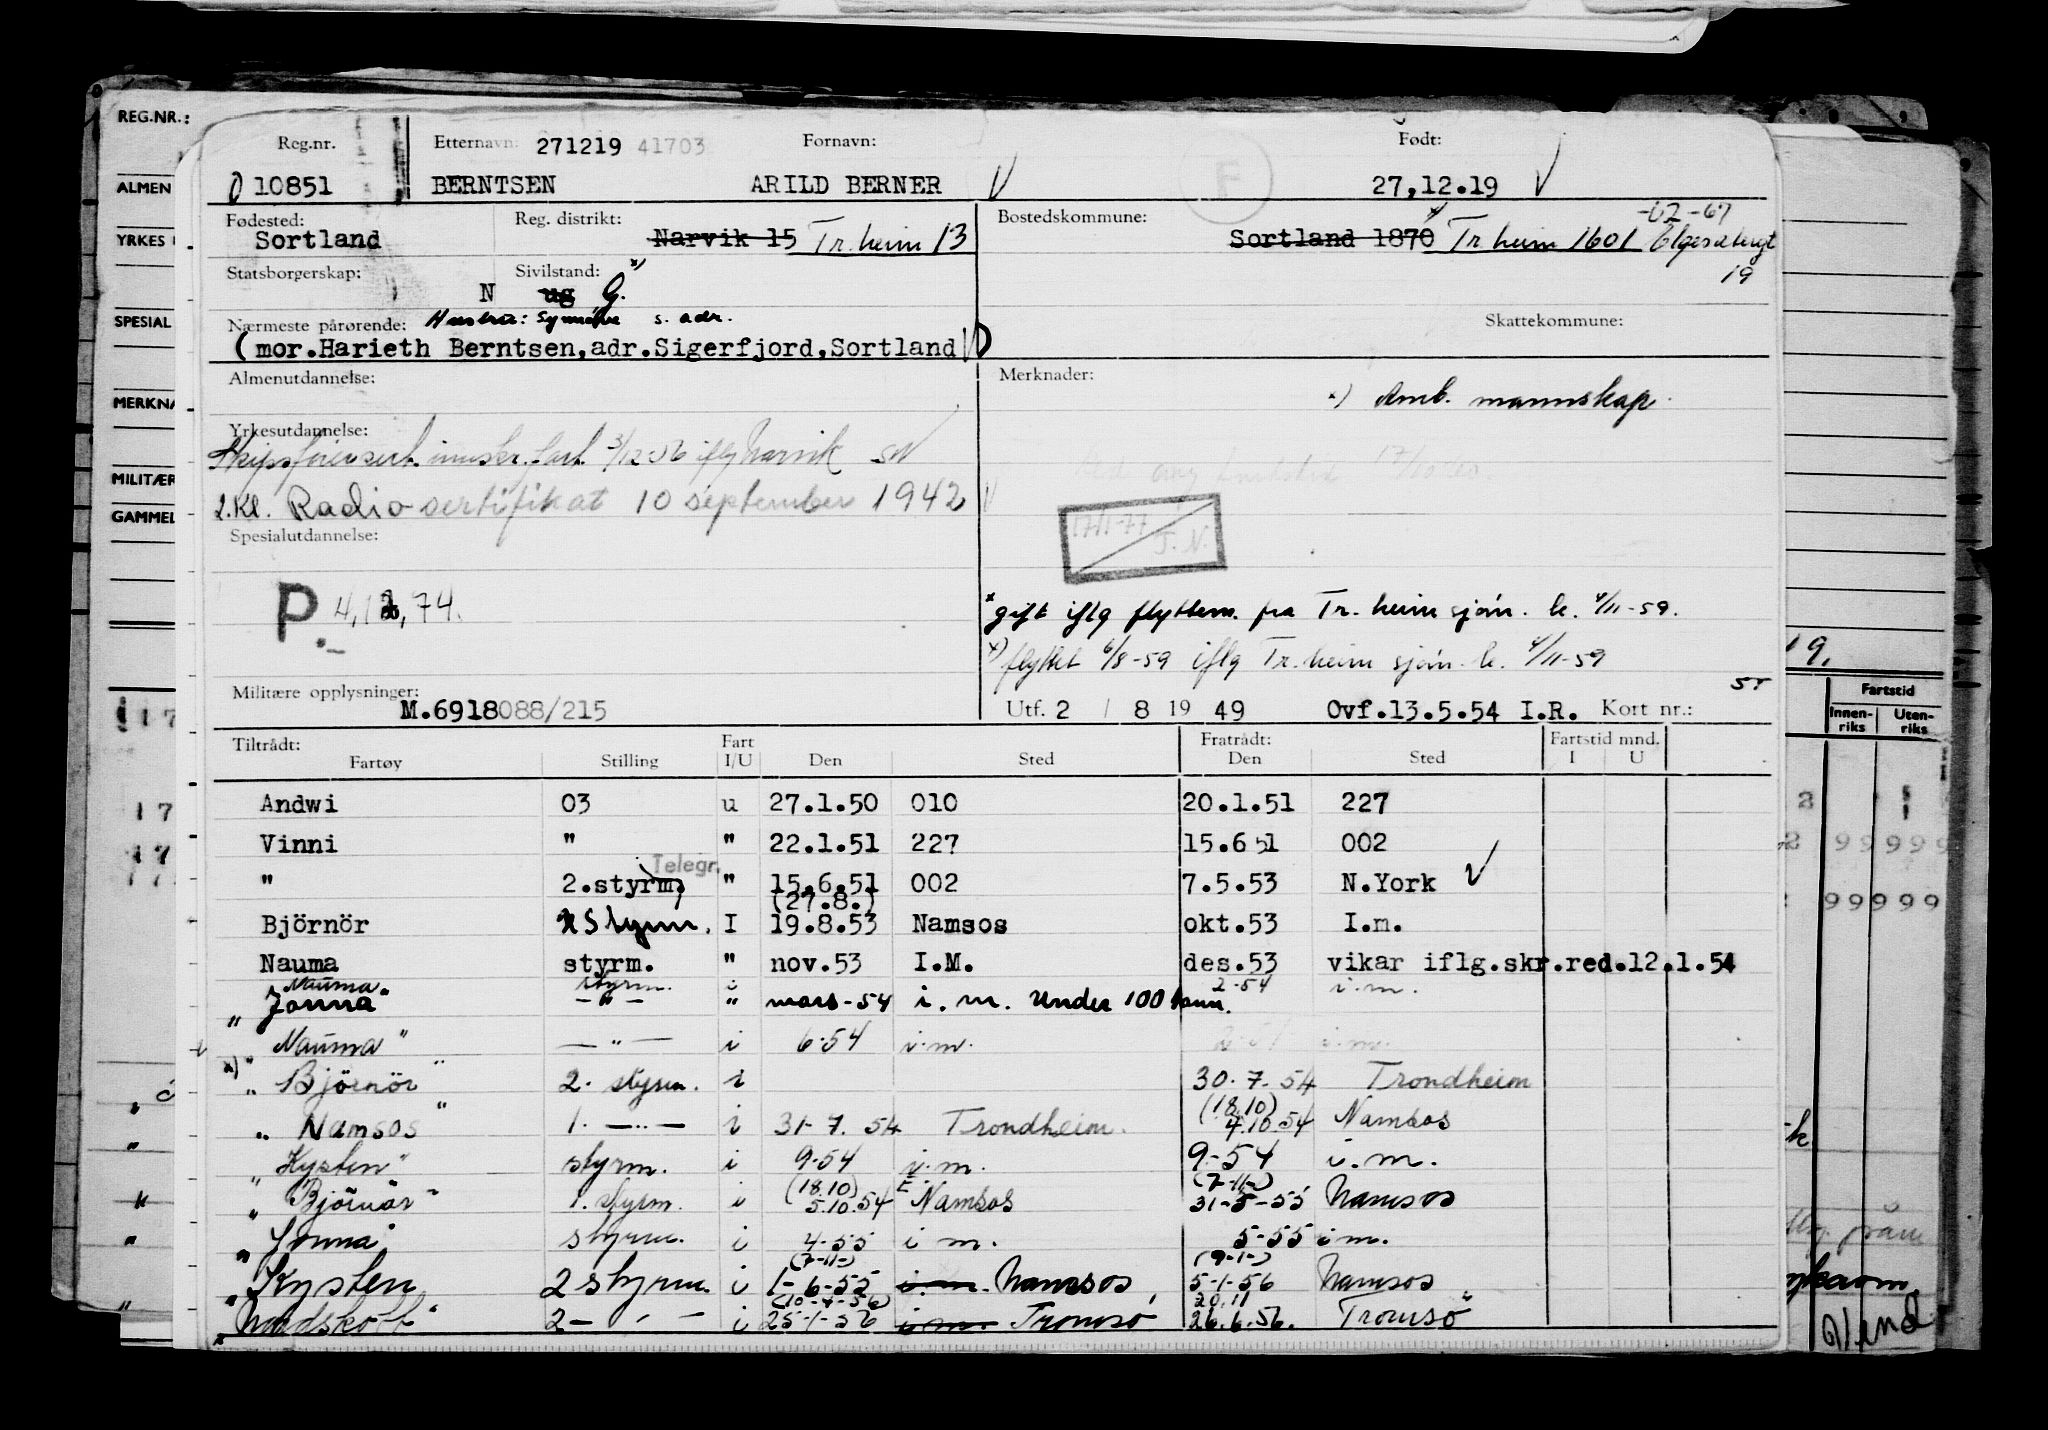 REG.NR.:
ALMEN
YRKES
SPESIAL
MERKNA
MILITÆR
GAMMEL
Reg.nr. Etternavn: 271219 41703 Fornavn: Født:
10851 BERNTSEN ARILD BERNER V F 27,12.19 V
Fødested: Reg. distrikt: Bostedskommune: -67
Sortland Narvik 15 Tr.heim 13 Sortland 1870 Tr heim 1601
19
Statsborgerskap: Sivilstand: x)
N ug G.
Nærmeste pårørende: Hustru: s. adr. Skattekommune:
(mor.Harieth Berntsen,adr.Sigerfjord,Sortland)
Almenutdannelse: Merknader:
x) Amb. mannskap.
Yrkesutdannelse:
3/12-56 iflg Narvik
2.Kl. Radio sertifikat 10 september 1942
Spesialutdannelse:
17/1-77
T.N.
P. 4,12,74.
x gift iflg flyttem. fra Tr. heim sjøm. k. 4/11-59.
x) flyttet 6/8-59 iflg Tr. heim sjøm. k. 4/11-59
Militære opplysninger: ST
M.6918088/215 Utf. 2 / 8 19 49 Ovf.13.5.54 I.R. Kort nr.:
Tiltrådt: Fart Fratrådt: Fartstid mnd.
Fartøy Stilling I/U Den Sted Den Sted I U
Andwi 03 u 27.1.50 010 20.1.51 227
Vinni " " 22.1.51 227 15.6 51 002
Telegr.
" 2.styrm. " 15.6.51 002 7.5.53 N.York V
(27.8.)
Björnör Styrm. I 19.8.53 Namsos okt.53 I.m.
Nauma styrm. " nov.53 I.M. des.53 vikar iflg.skr.red.12.1.54
Nauma styrm. i 2-54 i.m.
" Jonna" — " — " mars-54 i.m. Under 100 tonn.
" Nauma" — " — i 6-54 i.m.
x) " Björnör" 2. styrm. i 30. 7. 54 Trondheim
(18.10)
" Namsos" 1. — " — i 31- 7. 54 Trondheim. 4.10.54 Namsos
" Kysten" styrm. i 9-54 i.m. 9-54 i.m.
(18.10) (7-11-)
" Björnör" 1. styrm. i 5.10.54 Namsos 31-5-55 Namsos
" Jonna" styrm. i 4-55 i m. 5-55 i m.
(7-11-) (9-1-)
" Kysten 2 styrm. i 1-6-55 i.m. Namsos 5-1-56 Namsos
(10-4-56) 20.11
" 2 — " — i 25-1-56 i.m. Tromsø 26.6.56. Tromsø
19.
Fartstid
Innen-riks Uten-riks
99999
99999
Vend